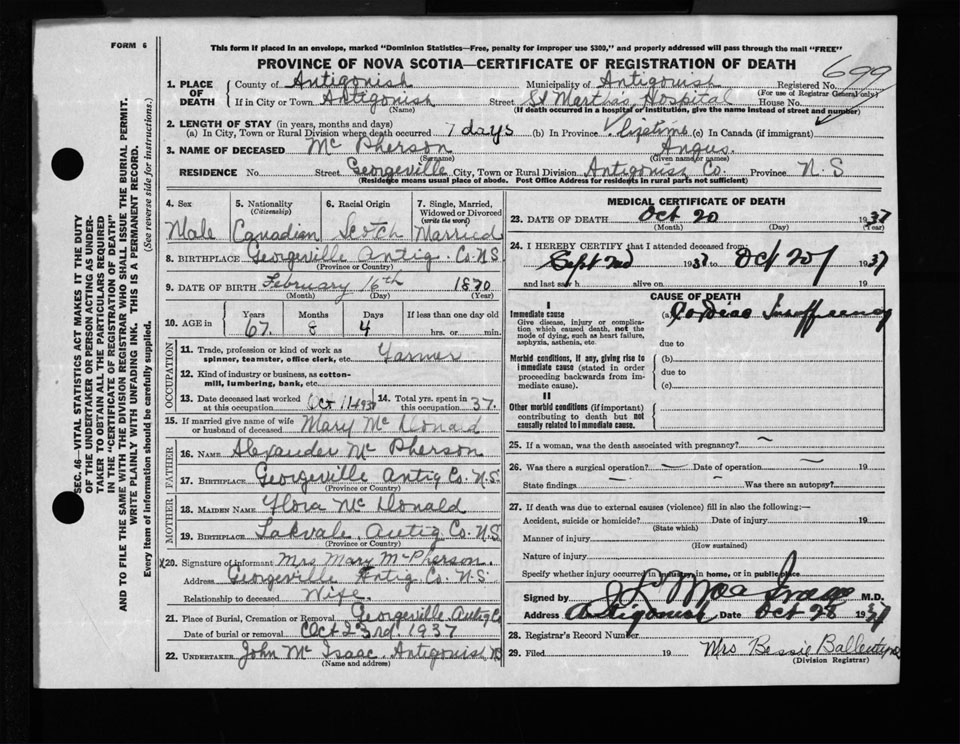 FORM 6
This form if placed in an envelope, marked "Dominion Statistics—Free, penalty for improper use $300," and properly addressed will pass through the mail "FREE"
PROVINCE OF NOVA SCOTIA—CERTIFICATE OF REGISTRATION OF DEATH
699
1. PLACE OF DEATH County of Antigonish Municipality of Antigonish Registered No.
(For use of Registrar General only)
If in City or Town Antigonish Street St Martha's Hospital House No.
(If death occurred in a hospital or institution, give the name instead of street and number)
2. LENGTH OF STAY (in years, months and days)
(a) In City, Town or Rural Division where death occurred 7 days (b) In Province lifetime (c) In Canada (if immigrant)
3. NAME OF DECEASED Mc Pherson Angus.
(Surname) (Given name or names)
RESIDENCE No. Street Georgeville City, Town or Rural Division Antigonish Co. Province N.S
(Residence means usual place of abode. Post Office Address for residents in rural parts not sufficient)
4. Sex 5. Nationality (Citizenship) 6. Racial Origin 7. Single, Married, Widowed or Divorced (write the word)
Male Canadian Scotch Married
8. BIRTHPLACE Georgeville Antig. Co. N.S
(Province or Country)
9. DATE OF BIRTH February 16th 1870
(Month) (Day) (Year)
10. AGE in Years Months Days If less than one day old
67 8 4 hrs. or min.
OCCUPATION
11. Trade, profession or kind of work as spinner, teamster, office clerk, etc. Farmer
12. Kind of industry or business, as cotton-mill, lumbering, bank, etc.
13. Date deceased last worked at this occupation Oct 1 1937 14. Total yrs. spent in this occupation 37.
15. If married give name of wife or husband of deceased Mary Mc Donard
FATHER
16. NAME Alexander Mc Pherson
17. BIRTHPLACE Georgeville Antig Co. N.S.
(Province or Country)
MOTHER
18. MAIDEN NAME Flora Mc Donald
19. BIRTHPLACE Lakvale Antig Co. N.S
(Province or Country)
20. Signature of informant Mrs Mary McPherson.
Address Georgeville Antig Co. N.S
Relationship to deceased Wife.
21. Place of Burial, Cremation or Removal Georgeville Antig Co
Date of burial or removal Oct 23rd. 1937
22. UNDERTAKER John Mc Isaac. Antigonish NS
(Name and address)
MEDICAL CERTIFICATE OF DEATH
23. DATE OF DEATH Oct 20 1937
(Month) (Day) (Year)
24. I HEREBY CERTIFY that I attended deceased from:
Sept 2nd 1937 to Oct 20 1937
and last saw h alive on 19
CAUSE OF DEATH
I
Immediate cause (a)
Give disease, injury or complication which caused death, not the mode of dying, such as heart failure, asphyxia, asthenia, etc.
due to
Morbid conditions, if any, giving rise to immediate cause (stated in order proceeding backwards from immediate cause).
(b)
due to
(c)
II
Other morbid conditions (if important) contributing to death but not causally related to immediate cause.
25. If a woman, was the death associated with pregnancy?
26. Was there a surgical operation? Date of operation 19
State findings Was there an autopsy?
27. If death was due to external causes (violence) fill in also the following:—
Accident, suicide or homicide? Date of injury 19
(State which)
Manner of injury
(How sustained)
Nature of injury
Specify whether injury occurred in industry, in home, or in public place
Signed by M.D.
Address Antigonish Date Oct 28 1937
28. Registrar's Record Number
29. Filed 19 Mrs Bessie
(Division Registrar)
SEC. 46—VITAL STATISTICS ACT MAKES IT THE DUTY
OF THE UNDERTAKER OR PERSON ACTING AS UNDER-
TAKER TO OBTAIN ALL THE PARTICULARS REQUIRED
IN THE "CERTIFICATE OF REGISTRATION OF DEATH"
AND TO FILE THE SAME WITH THE DIVISION REGISTRAR WHO SHALL ISSUE THE BURIAL PERMIT.
WRITE PLAINLY WITH UNFADING INK. THIS IS A PERMANENT RECORD.
Every item of information should be carefully supplied. (See reverse side for instructions.)